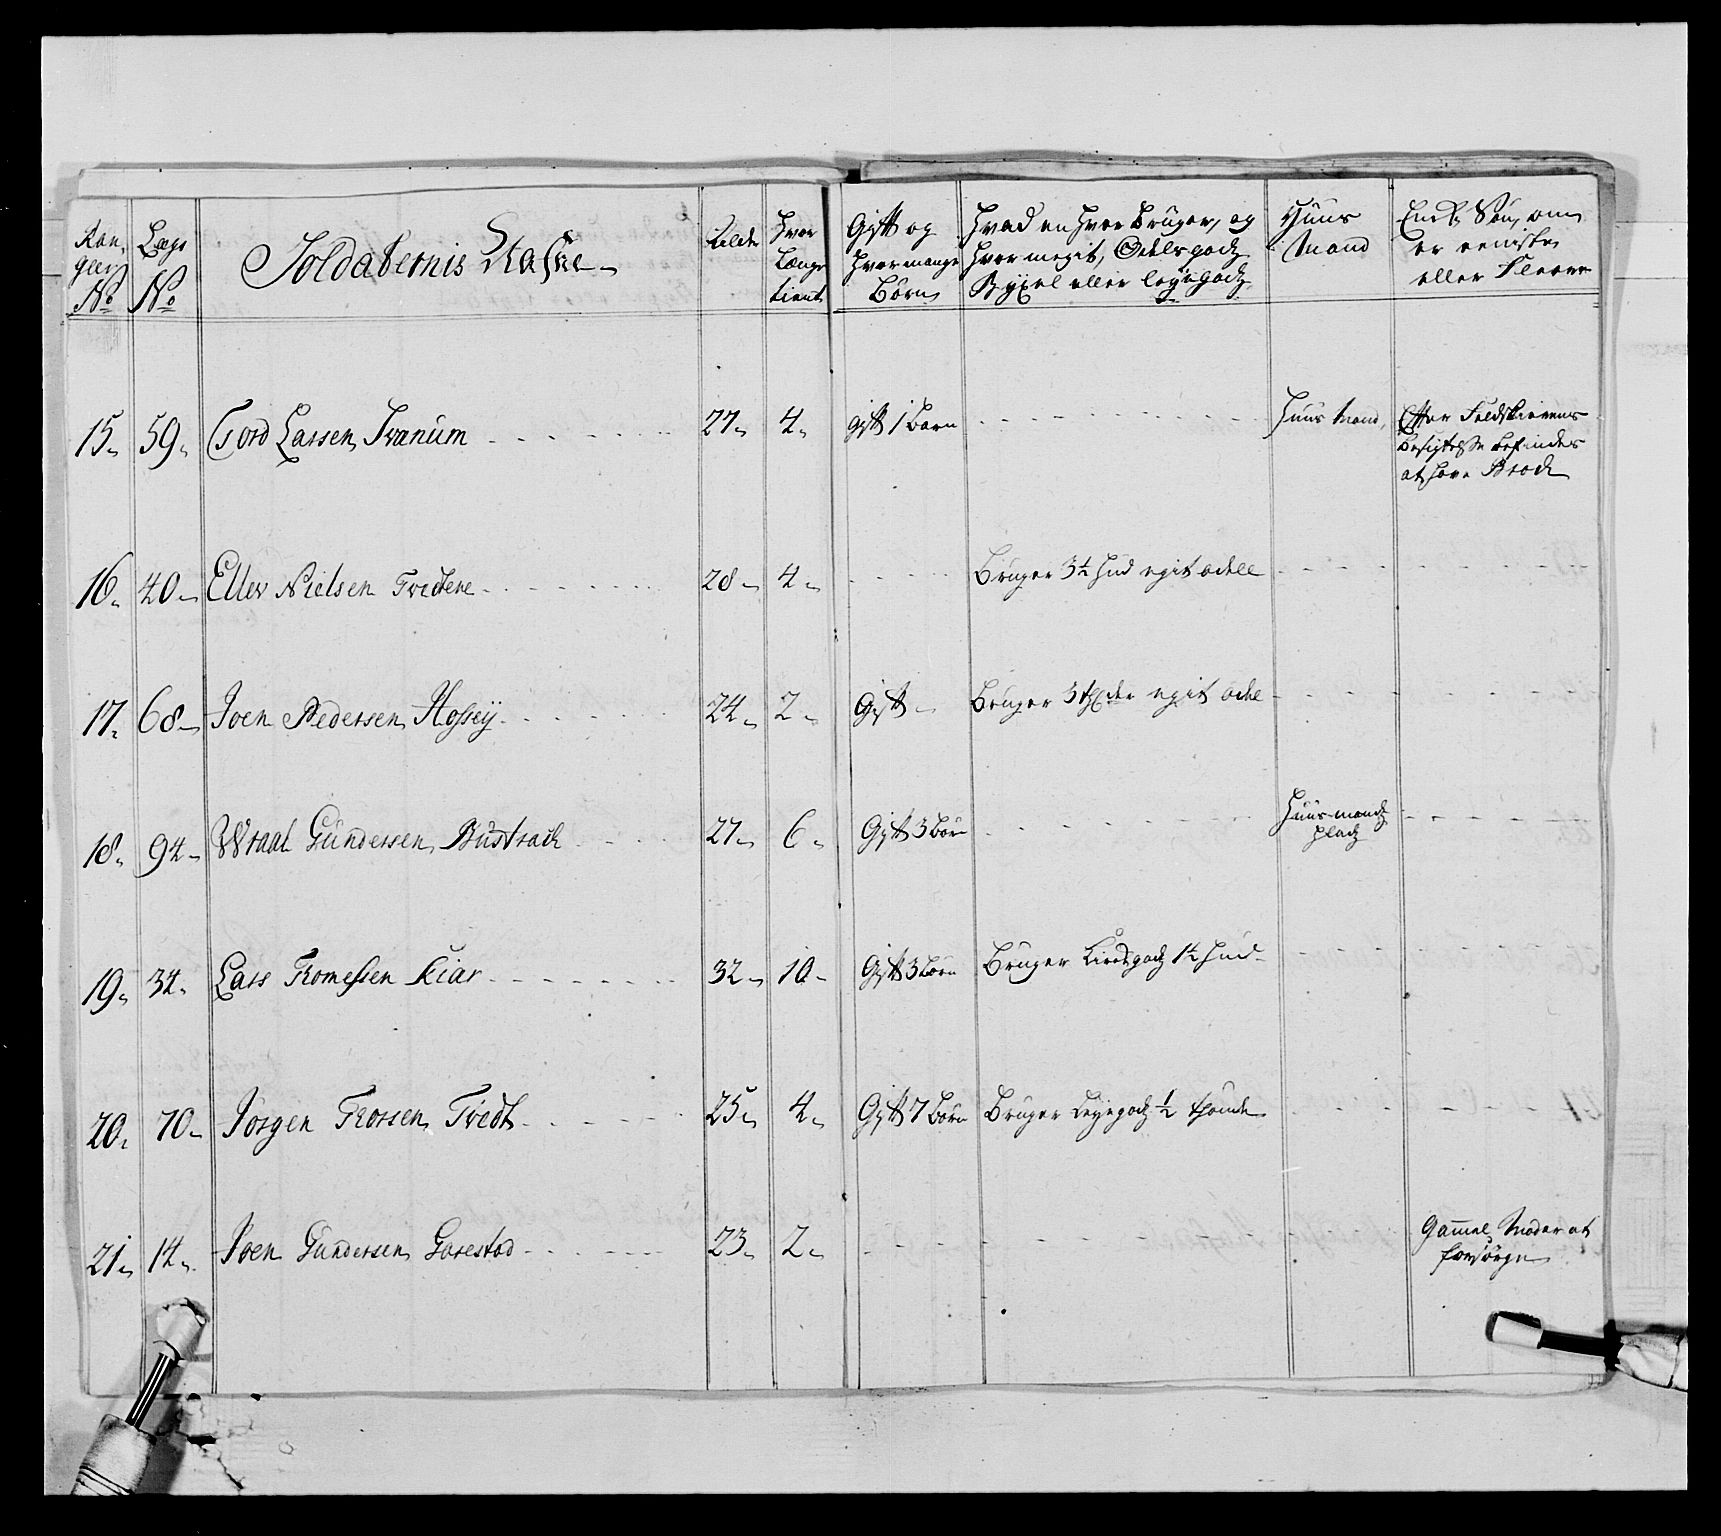 Ran,
geer
No
Lægs
No
Soldaternis Nafne
Alder
Hvor
Længe
tient
Gift og
hvor mange
Børn
Hvad en hver bruger, og
hvor megit, Odelsgods
Byxel eller leyegods
Huus
Mand
er eeniste
eller Fleere
15. 59. Tord Larsen Ivanum 27. 4. gift 1 barn Huusmand, Efter Feldskierens
besigtelse befindes
at have Brock
16. 40. Ellev Nielsen Tvetene 28. 4. Bruger 3½ hud egit odell
17. 68. Joen Pedersen Hofsey 24. 2. Gift Bruger 3 egit odel
18. 94. Wraal Gundersen Bustrack 27. 6. Gift 3 børn Huusmands
plads
19. 34. Lars Tromessen Kiær 32. 10. Gift 3 børn Bruger 1½ hud
20. 70. Jørgen Trorsen Tvedt 25. 4. Gift 7 børn Bruger Leyegods ½ tønde
21. 14. Joen Gundersen Gorestad 23. 2. Gammel Moder at
forsørge